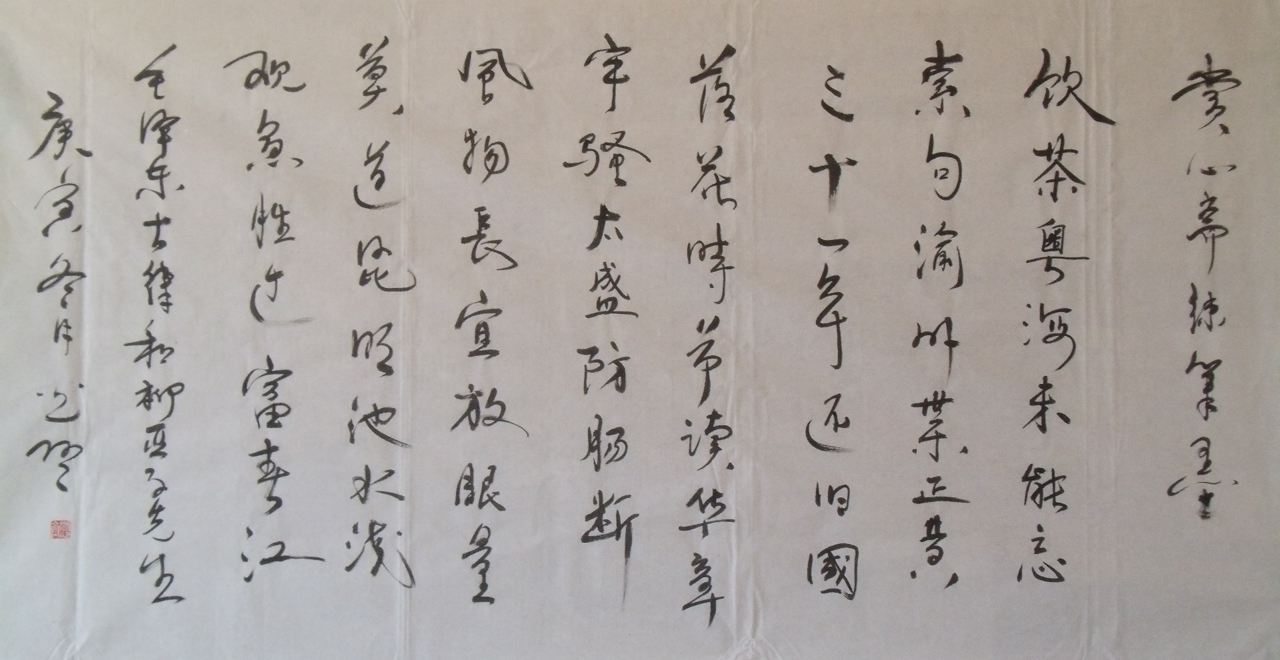 赏心斋练笔墨
饮茶粤海未能忘
索句渝州葉正黄
三十一年还旧國
落花時节读华章
牢骚太盛防肠断
風物長宜放眼量
莫道昆明池水浅
观鱼胜过富春江
毛泽东七律和柳亚子先生
庚寅冬月